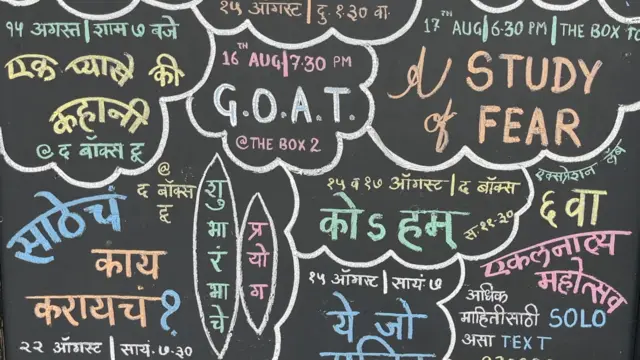 १५ अगस्त | शाम ७ बजे
एक प्यासे की
कहानी
@ द बॉक्स टू
१५ ऑगस्ट | दु. १.३० वा.
16TH AUG | 7:30 PM
G.O.A.T.
@ THE BOX 2
17TH AUG | 6:30 PM | THE BOX TO
A STUDY
of FEAR
साठेचं
काय
करायचं ?
@
द बॉक्स
टू
२२ ऑगस्ट | सायं. ७.३०
शुभारंभाचे
प्रयोग
१५ व १७ ऑगस्ट | द बॉक्स
कोऽहम्
स. ११.३०
१५ ऑगस्ट | सायं ७
ये जो
एक्सप्रेशन लॅब
६ वा
एकलनाट्य
महोत्सव
अधिक
माहितीसाठी SOLO
असा TEXT